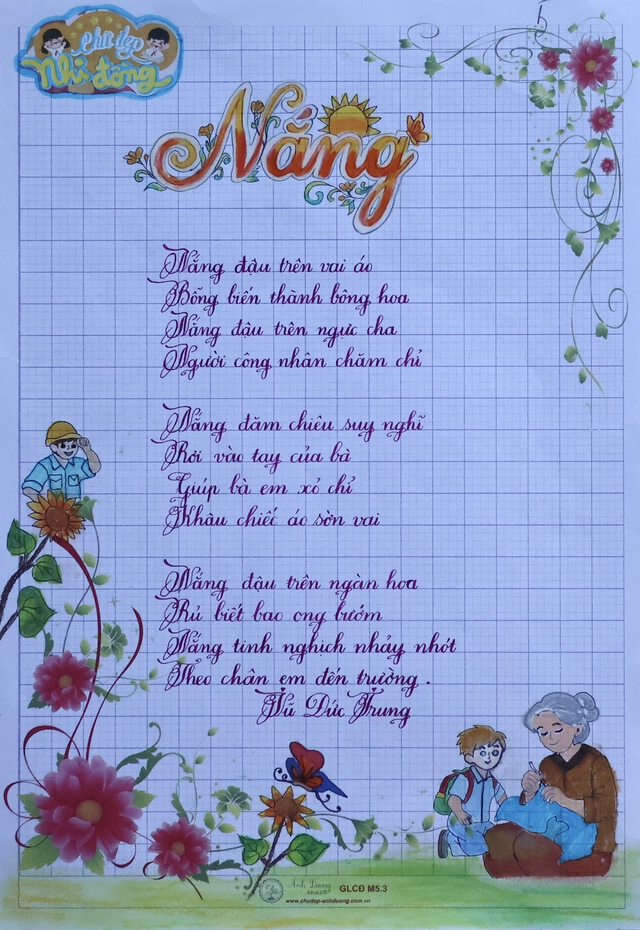 Chữ đẹp
Nhi đồng
Nắng
Nắng đậu trên vai áo
Bỗng biến thành bông hoa
Nắng đậu trên ngực cha
Người công nhân chăm chỉ
Nắng đăm chiêu suy nghĩ
Rơi vào tay của bà
Giúp bà em xỏ chỉ
Khâu chiếc áo sờn vai
Nắng đậu trên ngàn hoa
Rủ biết bao ong bướm
Nắng tinh nghịch nhảy nhót
Theo chân em đến trường .
Vũ Đức Trung
Ánh Dương
GLCĐ M5.3
www.chudep-anhduong.com.vn